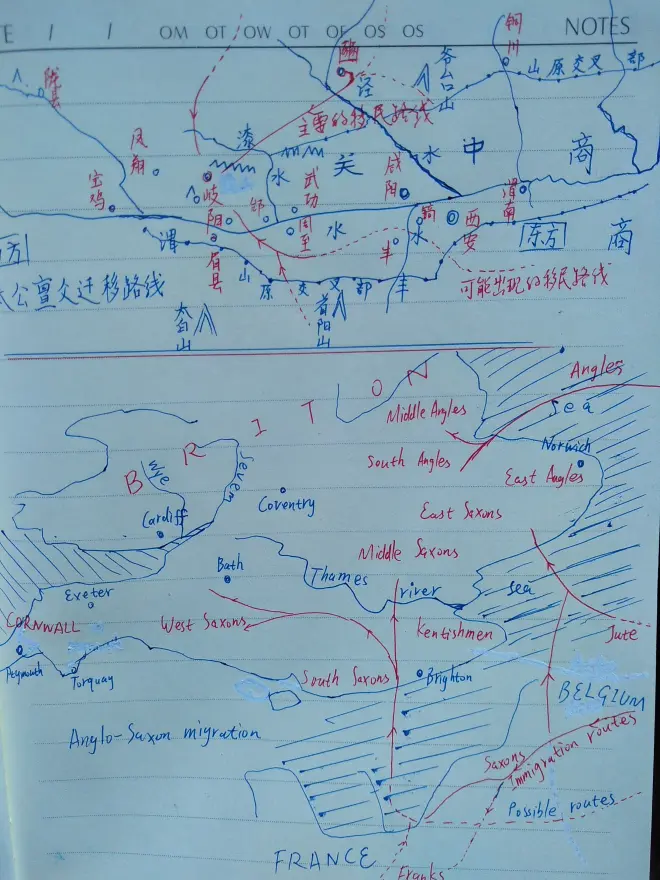 E / / OM OT OW OT OF OS OS NOTES
铜川
谷口山
山原交叉部
陇县
豳
泾
主要的移民路线
水
凤翔
漆
水
关
中
商
宝鸡
岐阳
邰
武功
咸阳
渭南
周至
水
水
西安
东方
商
渭
眉县
丰
丰
山原交叉部
可能出现的移民路线
方
公亶父迁移路线
太白山
首阳山
Angles
Sea
Middle Angles
South Angles
Norwich
East Angles
BRITON
Wye
Severn
Coventry
East Saxons
Cardiff
Middle Saxons
Bath
Thames river
Sea
Exeter
West Saxons
Kentishmen
CORNWALL
Jute
Plymouth
Torquay
South Saxons
Brighton
BELGIUM
Anglo-Saxon migration
Saxons
Immigration routes
Possible routes
FRANCE
Franks